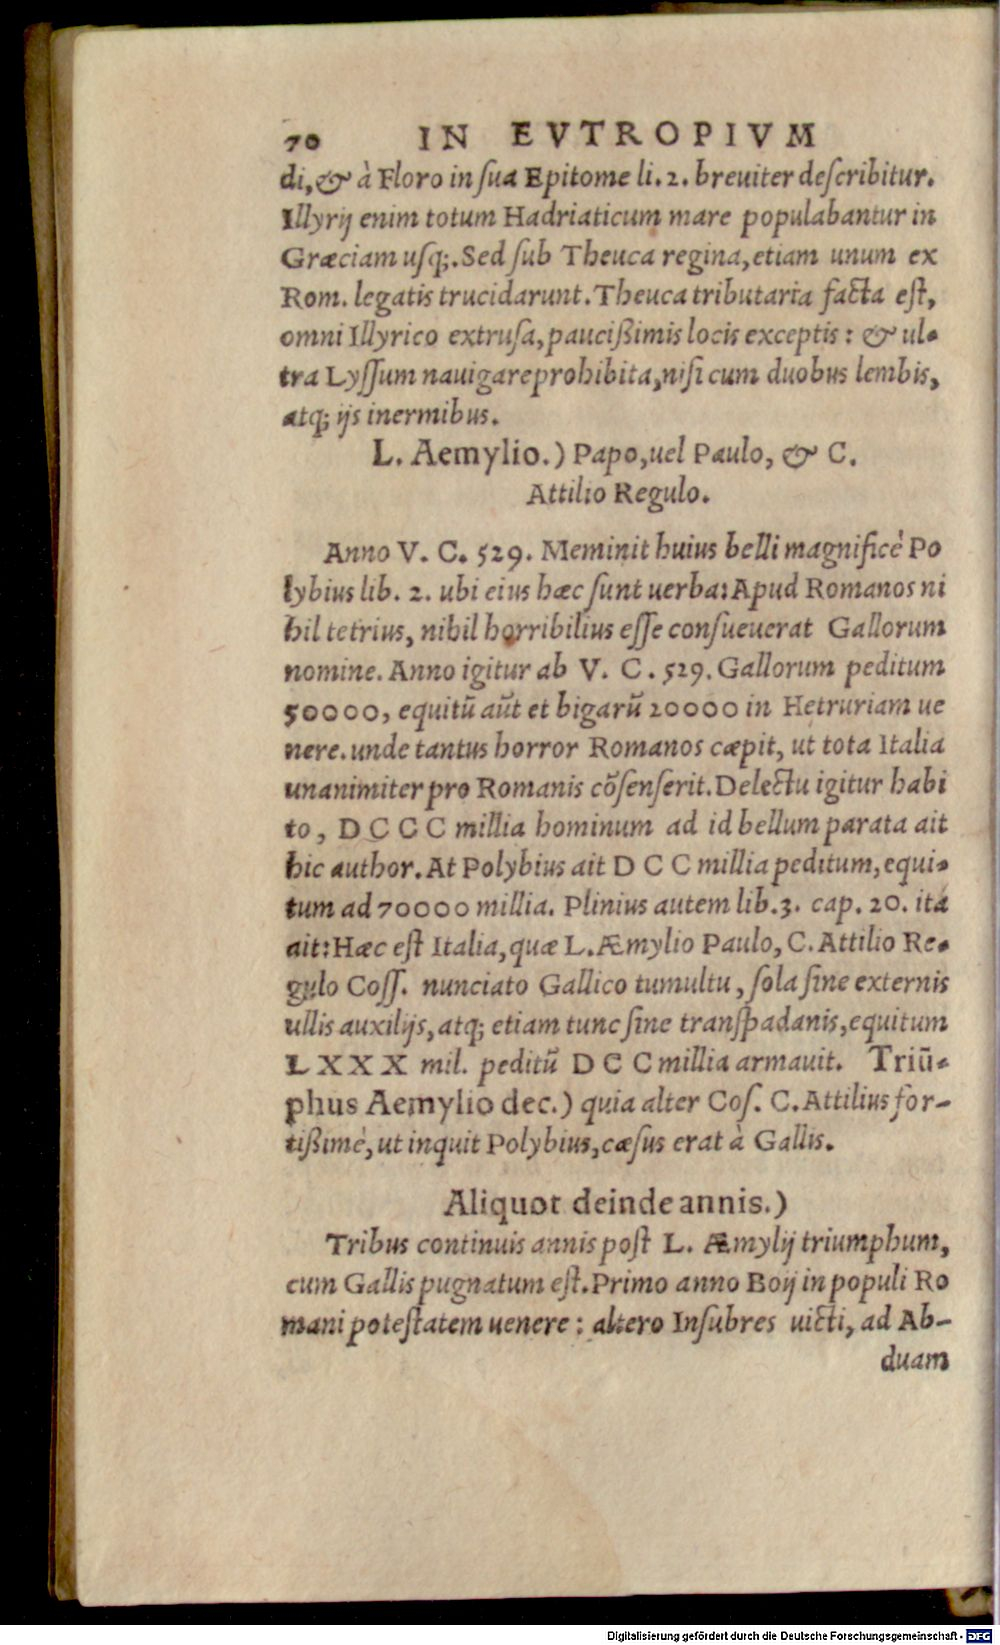 70 IN EVTROPIVM
di, & à Floro in ſua Epitome li. 2. breuiter deſcribitur.
Illyrij enim totum Hadriaticum mare populabantur in
Græciam uſq;. Sed ſub Theuca regina, etiam unum ex
Rom. legatis trucidarunt. Theuca tributaria facta eſt,
omni Illyrico extruſa, paucißimis locis exceptis: & ul-
tra Lyſſum nauigare prohibita, niſi cum duobus lembis,
atq; ijs inermibus.
L. Aemylio.) Papo, uel Paulo, & C.
Attilio Regulo.
Anno V. C. 529. Meminit huius belli magnificè Po
lybius lib. 2. ubi eius hæc ſunt uerba: Apud Romanos ni
hil tetrius, nihil horribilius eſſe conſueuerat Gallorum
nomine. Anno igitur ab V. C. 529. Gallorum peditum
50000, equitũ aũt et bigarũ 20000 in Hetruriam ue
nere. unde tantus horror Romanos cæpit, ut tota Italia
unanimiter pro Romanis cõſenſerit. Delectu igitur habi
to, D C C C millia hominum ad id bellum parata ait
hic author. At Polybius ait D C C millia peditum, equi-
tum ad 70000 millia. Plinius autem lib. 3. cap. 20. ita
ait: Hæc eſt Italia, quæ L. Æmylio Paulo, C. Attilio Re-
gulo Coſſ. nunciato Gallico tumultu, ſola ſine externis
ullis auxilijs, atq; etiam tunc ſine tranſpadanis, equitum
L X X X mil. peditũ D C C millia armauit. Triũ-
phus Aemylio dec.) quia alter Coſ. C. Attilius for-
tißimè, ut inquit Polybius, cæſus erat à Gallis.
Aliquot deinde annis.)
Tribus continuis annis poſt L. Æmylij triumphum,
cum Gallis pugnatum eſt. Primo anno Boij in populi Ro
mani poteſtatem uenere: altero Inſubres uicti, ad Ab-
duam
Digitalisierung gefördert durch die Deutsche Forschungsgemeinschaft - DFG